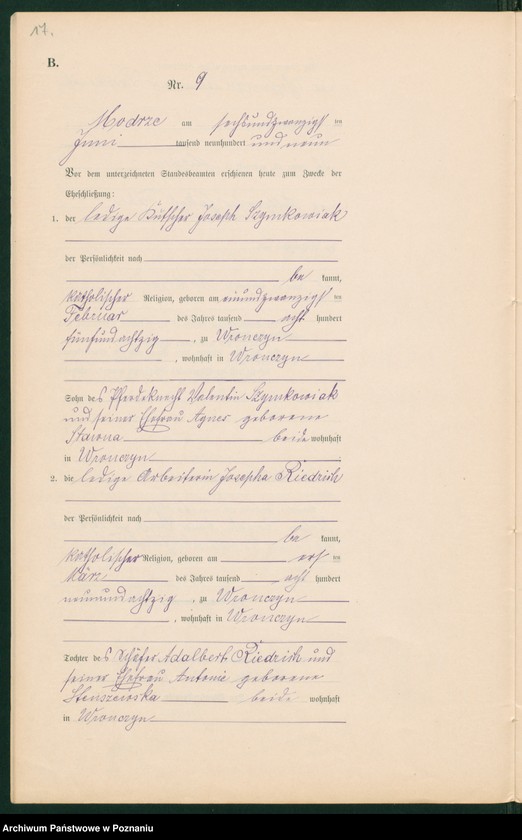 17.
B.
Nr. 9
Modrze am sechsundzwanzigs ten
Juni tausend neunhundert und neun
Vor dem unterzeichneten Standesbeamten erschienen heute zum Zwecke der
Eheschließung:
1. der ledige Kutscher Joseph Szymkowiak
der Persönlichkeit nach
be kannt,
katholischer Religion, geboren am einundzwanzigs ten
Februar des Jahres tausend acht hundert
fünfundachtzig, zu Wronczyn
, wohnhaft in Wronczyn
Sohn des Pferdeknecht Valentin Szymkowiak
und seiner Ehefrau Agnes geborene
beide wohnhaft
in Wronczyn
2. die ledige Arbeiterin Josepha Riedrich
der Persönlichkeit nach
be kannt,
katholischer Religion, geboren am ers ten
März des Jahres tausend acht hundert
neunundachtzig, zu Wronczyn
, wohnhaft in Wronczyn
Tochter des Schäfer Adalbert Riedrich und
seiner Ehefrau Antonie geborene
Stenszewska beide wohnhaft
in Wronczyn
Archiwum Państwowe w Poznaniu